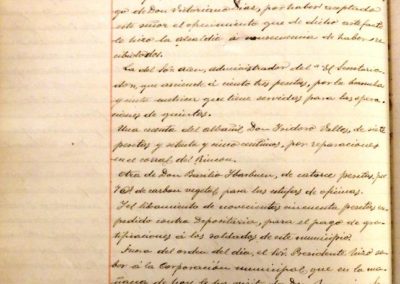 go de Don Victoriano Diaz, por haber aceptado
este señor el ofrecimiento que de dicho artefacto
le hizo la alcaldía á consecuencia de haber se
La del Sr. administrador del "El Secretaria
do", que asciende á ciento tres pesetas, por la
y que tiene servidos para las opera
ciones de quintas.
Una cuenta del albañil Don Isidoro Valles, de siete
pesetas y ochenta y cinco centimos, por reparaciones
en el corral del Rincon.
Otra de Don Basilio Ibarluen, de catorce pesetas, por
de carbon vegetal, para las estufas de oficinas.
Y el libramiento de novecientas cincuenta pesetas es
pedido contra Depositaria, para el pago de gra
tificaciones á los soldados de este municipio.
Fuera del orden del dia, el Sr. Presidente hizo sa
ber á la Corporacion municipal, que en la ma
ñana de hoy